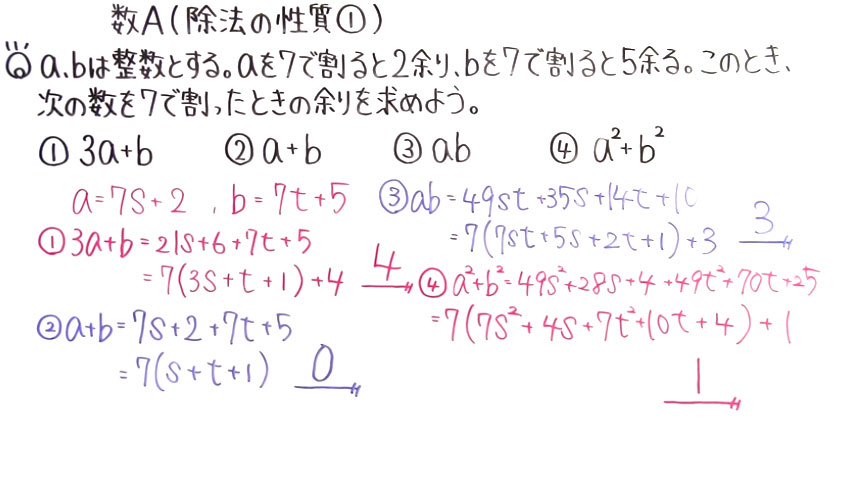 数A(除法の性質①)
◎ a、bは整数とする。aを7で割ると2余り、bを7で割ると5余る。このとき、
次の数を7で割ったときの余りを求めよう。
① 3a+b ② a+b ③ ab ④ a²+b²
a=7s+2 , b=7t+5
① 3a+b=21s+6+7t+5
=7(3s+t+1)+4 4
② a+b=7s+2+7t+5
=7(s+t+1) 0
③ ab=49st+35s+14t+10
=7(7st+5s+2t+1)+3 3
④ a²+b²=49s²+28s+4+49t²+70t+25
=7(7s²+4s+7t²+10t+4)+1
1